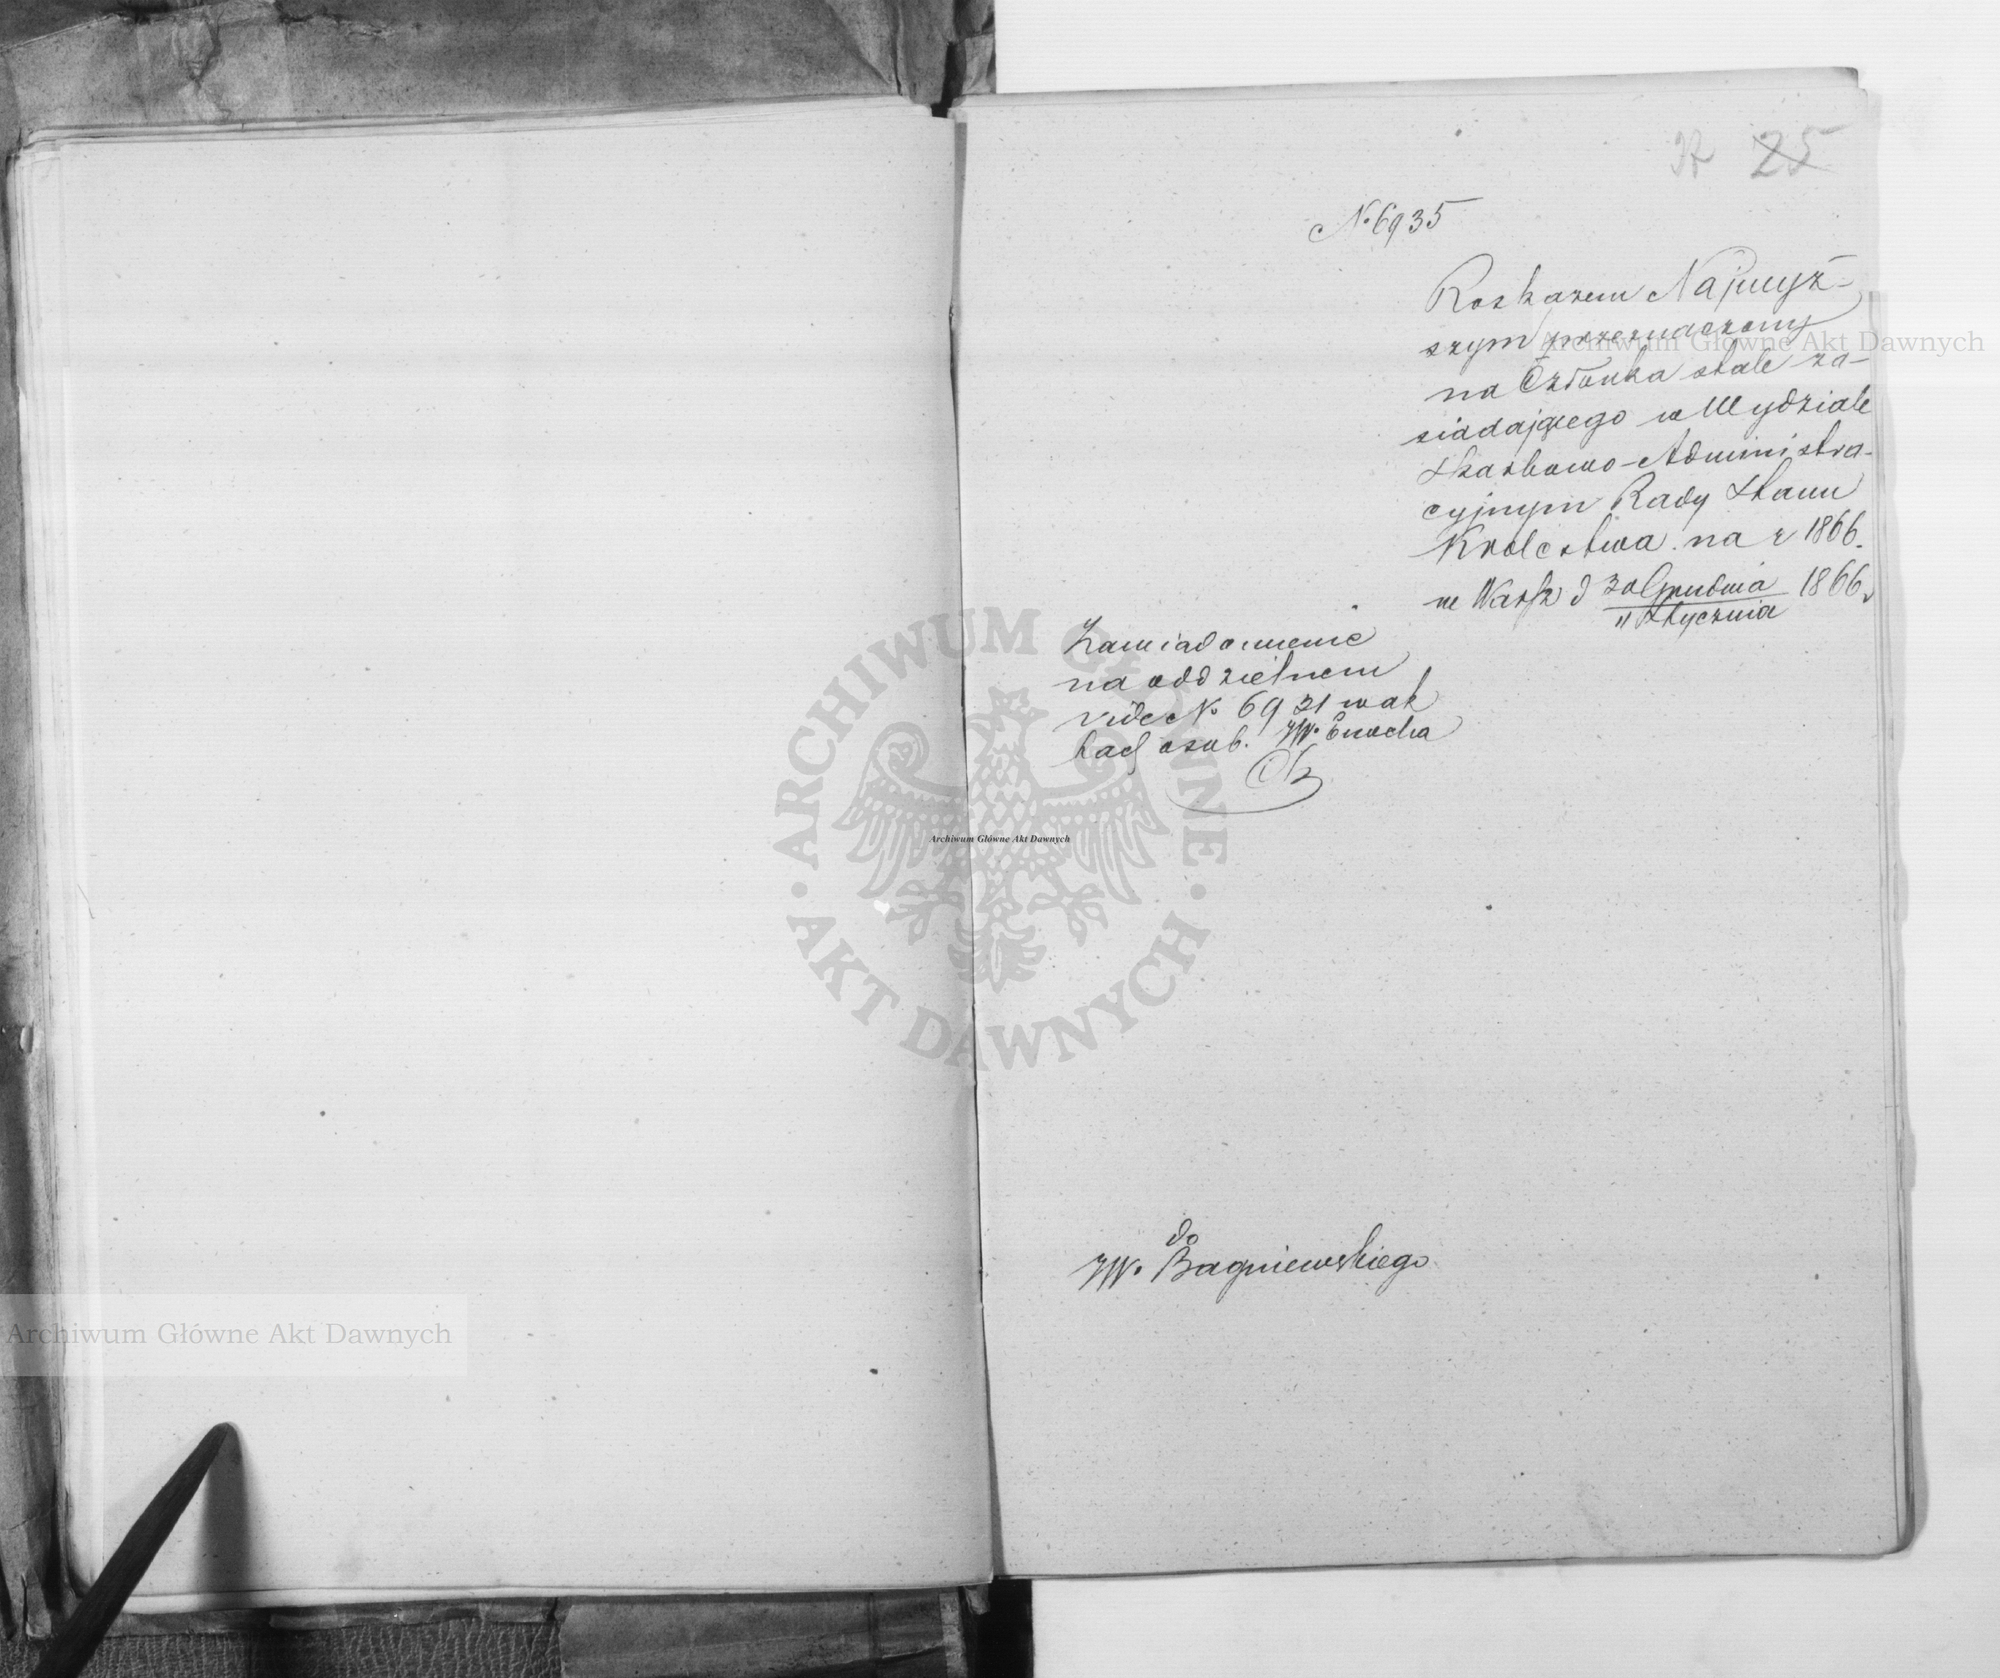 25
N. 6935
Rozkazem Najwyż-
szym przeznaczony
na Członka stale za-
siadającego w Wydziale
Skarbowo-Administra-
cyjnym Rady Stanu
Królestwa na r 1866.
w Warsz d 30 Grudnia 1866
11 Stycznia
Zawiadomienie
na oddzielnem
vide N. 6921 w ak
tach osob. JW. Enocha
do
JW. Bagniewskiego
Archiwum Główne Akt Dawnych
ARCHIWUM GŁÓWNE · AKT DAWNYCH ·
Archiwum Główne Akt Dawnych
Archiwum Główne Akt Dawnych